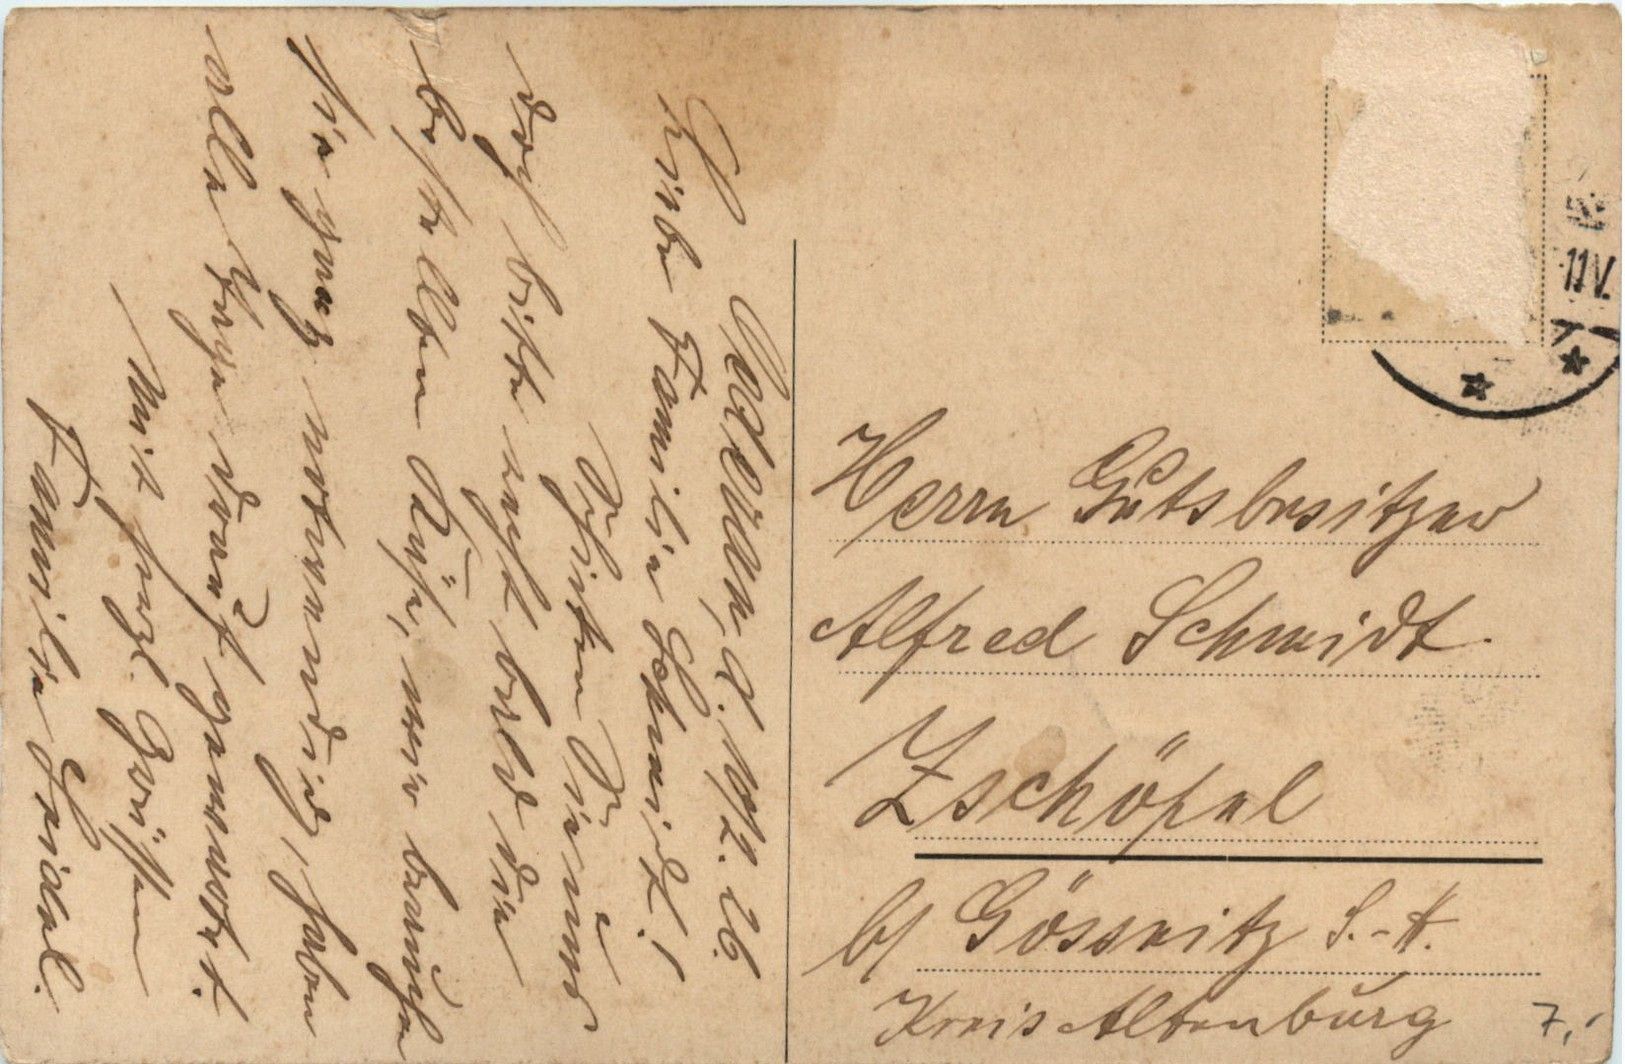 d. 10/2. 26.
Liebe Familie Schmidt!
Schicken Sie uns
doch bitte recht bald die
bestellten wir brauchen
sie ganz notwendig, haben
alle Tage darauf gewartet.
Mit herzl. Grüssen
Familie Seidel.
11 V.
Herrn Gutsbesitzer
Alfred Schmidt
Zschöpel
b/ Gössnitz S.-A.
Kreis Altenburg
7,-